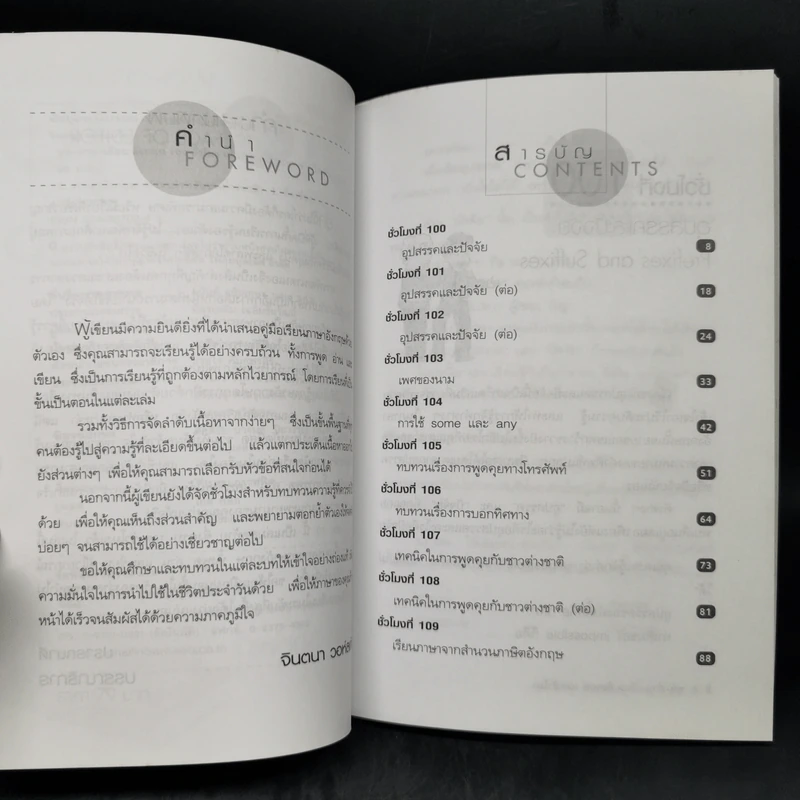 คำนำ
FOREWORD
ผู้เขียนมีความยินดียิ่งที่ได้นำเสนอคู่มือเรียนภาษาอังกฤษด้วย
ตัวเอง ซึ่งคุณสามารถจะเรียนรู้ได้อย่างครบถ้วน ทั้งการพูด อ่าน และ
เขียน ซึ่งเป็นการเรียนรู้ที่ถูกต้องตามหลักไวยากรณ์ โดยการเรียนที่เป็น
ขั้นเป็นตอนในแต่ละเล่ม
รวมทั้งวิธีการจัดลำดับเนื้อหาจากง่ายๆ ซึ่งเป็นขั้นพื้นฐานที่ทุก
คนต้องรู้ไปสู่ความรู้ที่ละเอียดขึ้นต่อไป แล้วแตกประเด็นเนื้อหาออก
ยังส่วนต่างๆ เพื่อให้คุณสามารถเลือกรับหัวข้อที่สนใจก่อนได้
นอกจากนี้ผู้เขียนยังได้จัดชั่วโมงสำหรับทบทวนความรู้ที่
ด้วย เพื่อให้คุณเห็นถึงส่วนสำคัญ และพยายามตอกย้ำตัวเองให้
บ่อยๆ จนสามารถใช้ได้อย่างเชี่ยวชาญต่อไป
ขอให้คุณศึกษาและทบทวนในแต่ละบทให้เข้าใจอย่างถ่องแท้
ความมั่นใจในการนำไปใช้ในชีวิตประจำวันด้วย เพื่อให้ภาษาของคุณ
หน้าได้เร็วจนสัมผัสได้ด้วยความภาคภูมิใจ
จินตนา
สารบัญ
CONTENTS
ชั่วโมงที่ 100
อุปสรรคและปัจจัย 8
ชั่วโมงที่ 101
อุปสรรคและปัจจัย (ต่อ) 18
ชั่วโมงที่ 102
อุปสรรคและปัจจัย (ต่อ) 24
ชั่วโมงที่ 103
เพศของนาม 33
ชั่วโมงที่ 104
การใช้ some และ any 42
ชั่วโมงที่ 105
ทบทวนเรื่องการพูดคุยทางโทรศัพท์ 51
ชั่วโมงที่ 106
ทบทวนเรื่องการบอกทิศทาง 64
ชั่วโมงที่ 107
เทคนิคในการพูดคุยกับชาวต่างชาติ 73
ชั่วโมงที่ 108
เทคนิคในการพูดคุยกับชาวต่างชาติ (ต่อ) 81
ชั่วโมงที่ 109
เรียนภาษาจากสำนวนภาษิตอังกฤษ 88